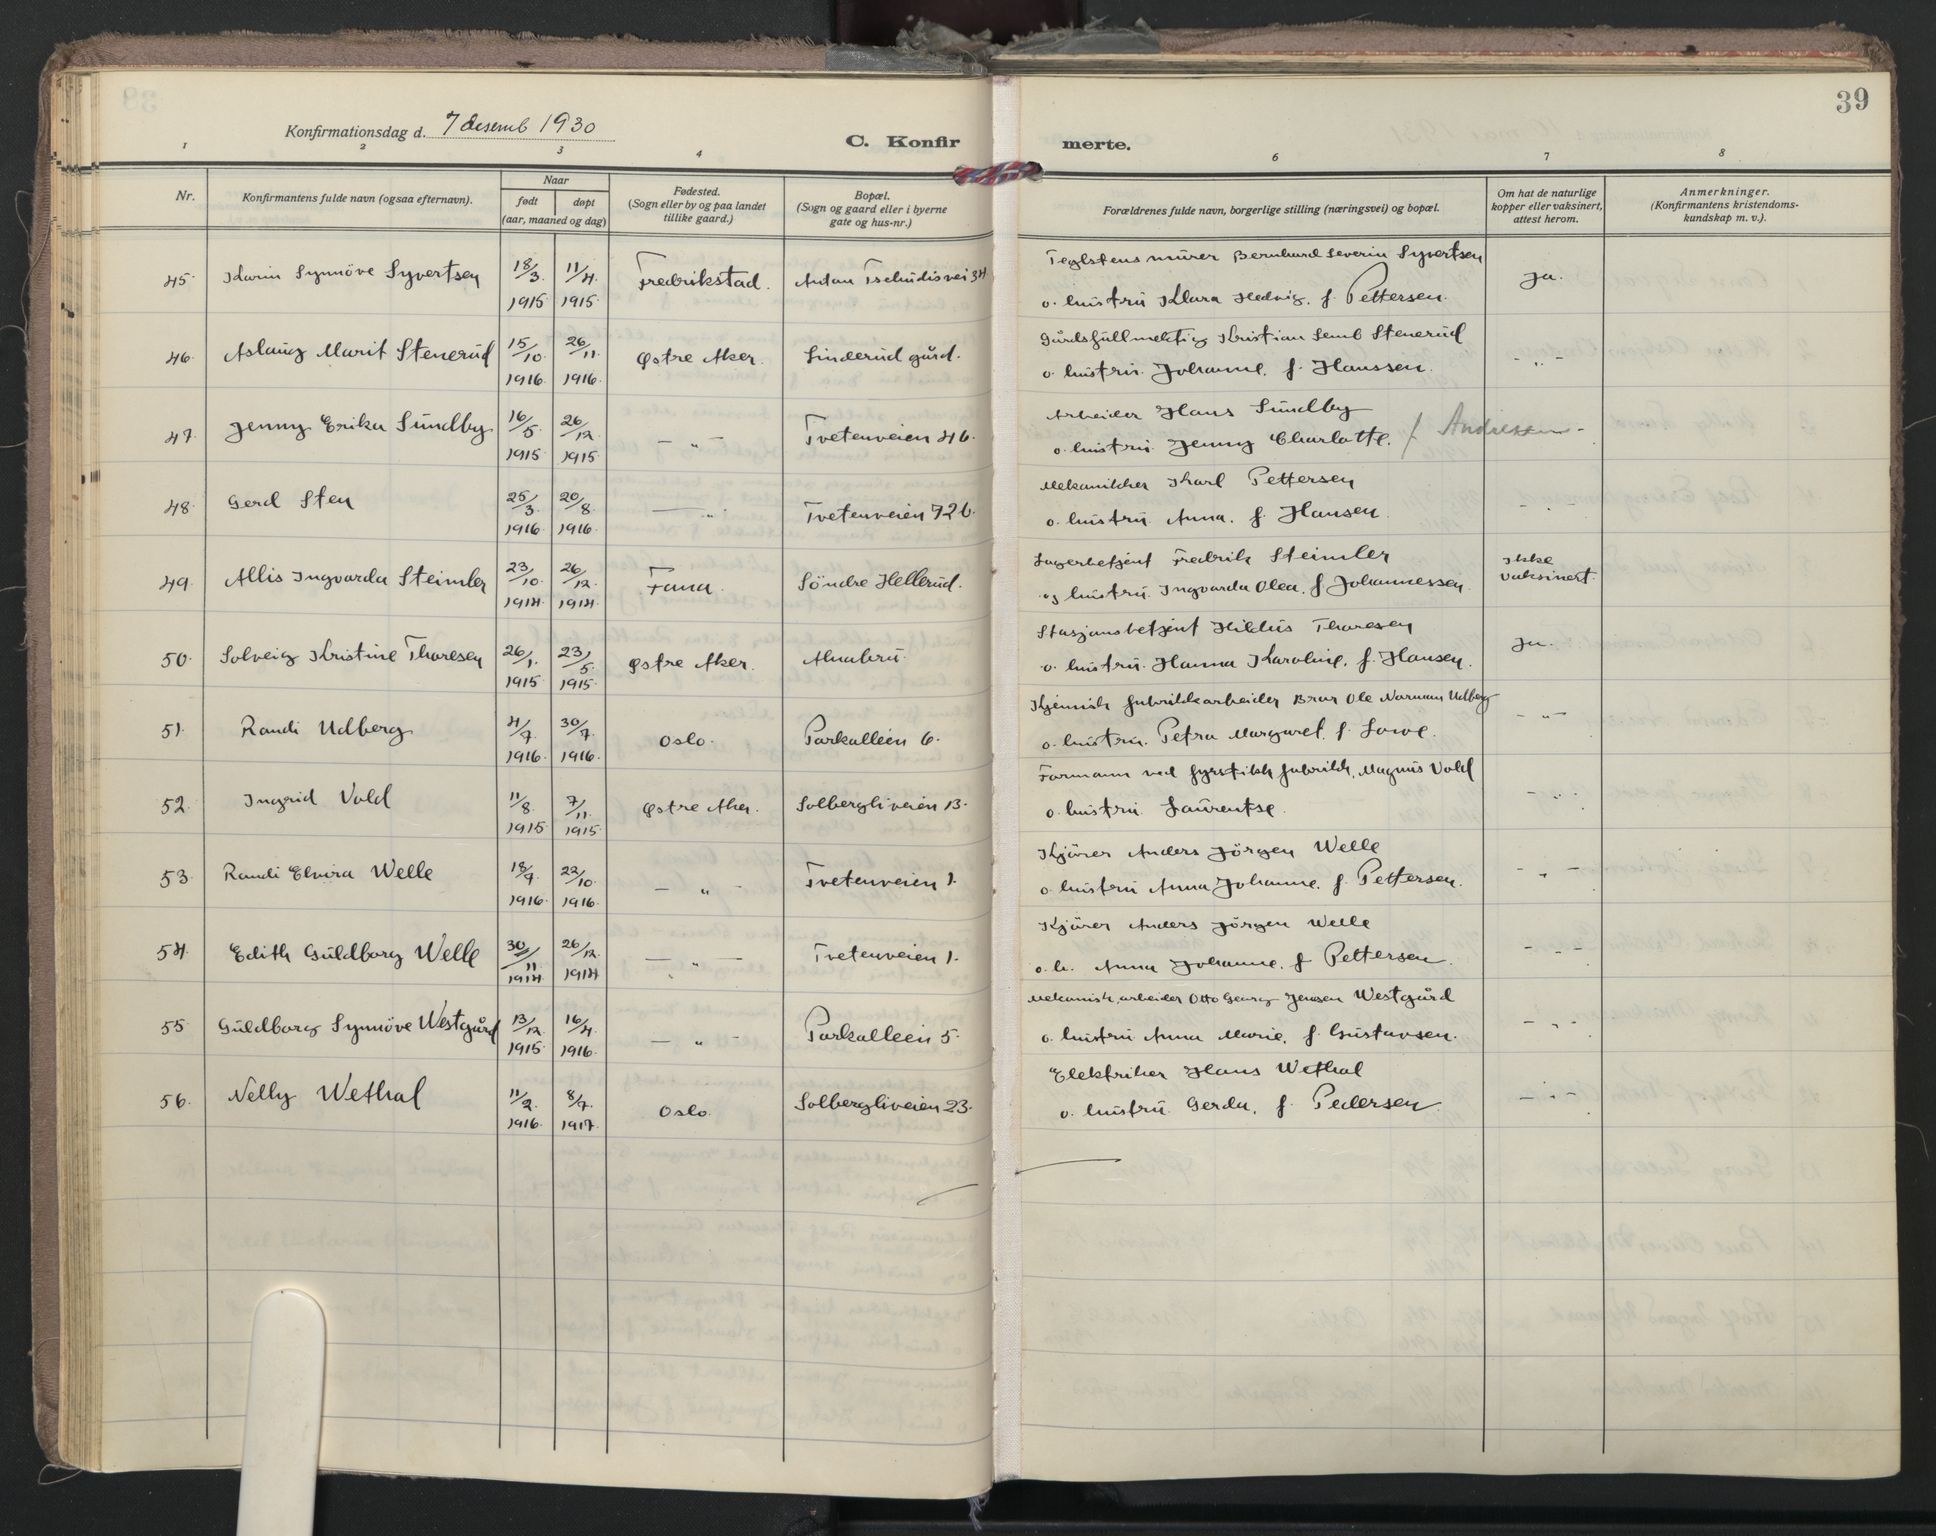 39
Konfirmationsdag d. 7 desemb 1930
C. Konfirmerte.
1 2 3 4 6 7 8
Nr.
Konfirmantens fulde navn (ogsaa efternavn).
Naar
født døpt
(aar, maaned og dag)
Fødested.
(Sogn eller by og paa landet
tillike gaard.)
Bopæl.
(Sogn og gaard eller i byerne
gate og hus-nr.)
Forældrenes fulde navn, borgerlige stilling (næringsvei) og bopæl.
Om hat de naturlige
kopper eller vaksinert,
attest herom.
Anmerkninger.
(Konfirmantens kristendoms-
kundskap m. v.).
45. Karin Synnöve Syvertsen 18/3 1915 11/4 1915 Fredrikstad. Anton Tschudisvei 34
Teglstensmurer Bernhard Severin Syvertsen
o. hustru Klara Hedvig, f. Pettersen. Ja.
46. Aslaug Marit Stenerud 15/10 1916. 26/11. 1916. Østre Aker. Linderud gård.
Gårdsfullmektig Kristian Semb Stenerud
o. hustru. Johanne, f. Hanssen. - " -
47. Jenny Erika Sundby 16/5 1915 26/12. 1915 - " - Tvetenveien 46.
Arbeider Hans Sundby
o. hustru. Jenny Charlotte. f Andressen -
48. Gerd Sten 25/3. 1916 20/8. 1916. - " Tvetenveien 72 b.
Mekaniker Karl Pettersen
o. hustru. Anna, f. Hansen. - " -
49. Allis Ingvarda Steimler 23/10. 1914 26/12. 1914. Fana. Söndre Hellerud.
Lagerbetjent Fredrik Steimler
og hustru. Ingvarda Olea, f Johannessen. Ikke
vaksinert.
50. Solveig Kristine Thoresen 26/1. 1915 23/5. 1915. Østre Aker. Alnabru.
Stasjonsbetjent Hildus Thoresen
o. hustru. Hanna Karoline, f. Hansen. Ja.
51. Randi Udberg 4/7. 1916. 30/7. 1916. Oslo. Parkalleen 6.
Kjemisk fabrikkarbeider Brar Ole Norman Udberg
o. hustru. Petra Margaret, f. Lowe. - " -
52. Ingrid Vold 11/8. 1915 7/11. 1915 Østre Aker. Solbergliveien 13.
Formann ved fyrstikkfabrikk, Magnus Vold
o. hustru. Laurentse. - " -
53. Randi Elvira Welle 18/7. 1916. 22/10. 1916. - " - Tvetenveien 1.
Kjörer Anders Jörgen Welle
o. hustru Anna Johanne, f. Pettersen. - " -
54. Edith Guldborg Welle 30/11. 1914 26/12. 1914 - " - Tvetenveien 1.
Kjörer Anders Jörgen Welle
o. h. Anna Johanne, f Pettersen. - " -
55. Guldborg Synnöve Westgård 13/12. 1915 16/4. 1916. - " - Parkalleen 5.
Mekanisk. arbeider Otto Georg Jensen Westgård
o. hustru Anna Marie, f. Gustavsen. - " -
56. Nelly Wethal 11/2. 1916. 8/7. 1917. Oslo. Solbergliveien 23.
Elektriker Hans Wethal
o. hustru. Gerda, f. Pedersen. - " -